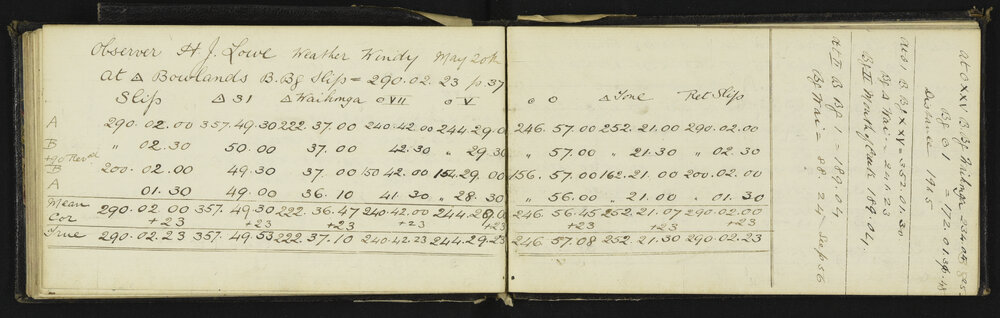 Observer H J. Lowe Weather Windy May 20th
At △ Bowlands B.Bg Slip = 290.02.23 p 37
Slip △ 31 △ Waihonga o VII o V o o △ Tone Ret Slip
A 290.02.00 357.49.30 222.37.00 240.42.00 244.29.00 246.57.00 252.21.00 290.02.00
B " 02.30 50.00 37.00 42.30 " 29.30 " 57.00 " 21.30 " 02.30
+90 Revd
B 200.02.00 49.30 37.00 150.42.00 154.29.00 156.57.00 162.21.00 200.02.00
A 01.30 49.00 36.10 41.30 " 28.30 " 56.00 " 21.00 " 01.30
Mean 290.02.00 357.49.30 222.36.47 240.42.00 244.29.00 246.56.45 252.21.07 290.02.00
Cor +23 +23 +23 +23 +23 +23 +23 +23
True 290.02.23 357.49.53 222.37.10 240.42.23 244.29.23 246.57.08 252.21.30 290.02.23
At II B Bg 1 = 189.04
Bg Wai = 88.24 Seep 56
B/III Mouth of Creek 189.04.
At 01. B Bg XXV = 252.01.30
Bg △ Wai = 241.23
At O XXV B.Bg
Bg 01 = 172.01.30 p. 48
Distance 1915